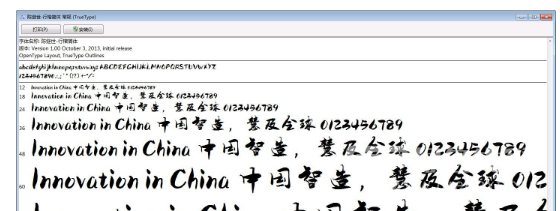 陈继世-行楷简体 常规 (TrueType)
打印(P) 安装(I)
字体名称: 陈继世-行楷简体
版本: Version 1.00 October 3, 2013, initial release
OpenType Layout, TrueType Outlines
abcdefghijklmnopqrstuvwxyz ABCDEFGHIJKLMNOPQRSTUVWXYZ
1234567890.:,;
12 Innovation in China 中国智造，慧及全球 0123456789
18 Innovation in China 中国智造，慧及全球 0123456789
24 Innovation in China 中国智造，慧及全球 0123456789
36 Innovation in China 中国智造，慧及全球 0123456789
48 Innovation in China 中国智造，慧及全球 0123456789
60 Innovation in China 中国智造，慧及全球 012